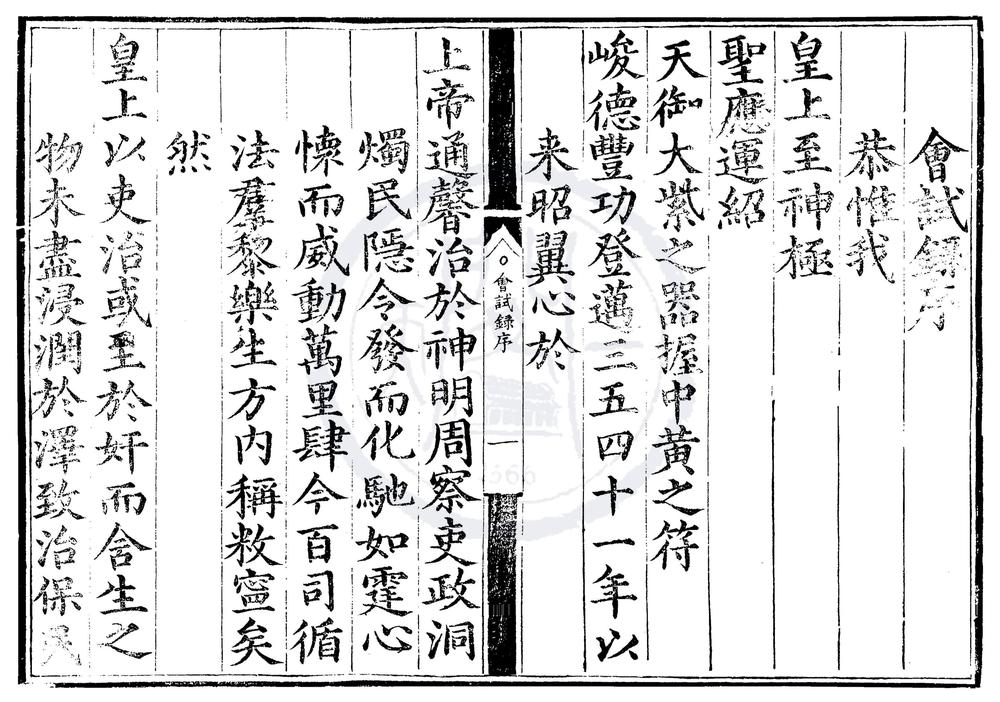 會試録序
恭惟我
皇上至神極
聖應運紹
天御大紫之器握中黄之符
峻德豐功登邁三五四十一年以
来昭翼心於
會試録序
一
上帝通馨治於神明周察吏政洞
燭民隱令發而化馳如霆心
懍而威動萬里肆今百司循
法羣黎樂生方内稱敉寍矣
然
皇上以吏治或至於奸而含生之
物未盡浸潤於澤致治保民